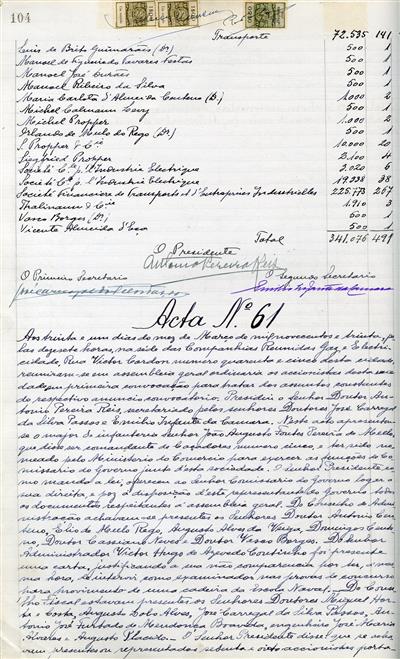 104
Transporte 72.535 141
Luis de Brito Guimarães (Dr) 500 1
Manoel de Figueiredo Tavares Festas 500 1
Manoel José Durães 500 1
Manoel Ribeiro da Silva 500 1
Maria Carlota d'Almeida Couteno (D.) 1.000 2
Michel Calmann Levy 500 1
Michel Propper 1.000 2
Orlando de Mello do Rego (Dr) 500 1
S. Propper & Cie 10.000 20
Siegfried Propper 2.100 4
Societé Cle p. l'Industrie Electrique 3.020 6
Societé Cle p. l'Industrie Electrique 19.238 38
Societé Financière de Transports et d'Entreprises Industrielles 225.773 207
Thalmann & Cie 1.910 3
Vasco Borges (Dr) 500 1
Vicente Almeida d'Eça 500 1
Total 341.076 491
O Presidente
Antonio Pereira Reis
O Primeiro Secretario O segundo Secretario
Acta Nº 61
Aos trinta e um dias do mez de Março de mil novecentos e trinta, pe-
las dezesete horas, na séde das Companhias Reunidas Gaz e Electri-
cidade, Rua Victor Cordon numero quarenta e cinco desta cidade,
reuniram-se em assembleia geral ordinaria os accionistas desta socie-
dade em primeira convocação para tratar dos assuntos constantes
do respectivo anuncio convocatorio. Presidiu o Senhor Doutor An-
tonio Pereira Reis, secretariado pelos senhores Doutores José Carrega
da Silva Passos e Emilio Infante da Camara. Neste acto apresentou-
se o major de infantaria Senhor João Augusto Fontes Pereira de Mello,
que disse ser comandante de Caçadores numero cinco e ter sido no-
meado pelo Ministerio do Comercio para exercer as funções de Co-
missario do Governo junto desta sociedade. O Senhor Presidente, co-
mo manda a lei, ofereceu ao Senhor Comissario do Governo logar á
sua direita, e poz á disposição d'este representante do Governo todos
os documentos respeitantes á assembleia geral. Do Conselho de Admi-
nistração achavam-se presentes os Senhores Doutor Antonio Cen-
teno, Elio de Mello Rego, Augusto Alves da Veiga, Domingos Cente-
no, Doutor Cassiano Neves e Doutor Vasco Borges. Do Senhor
Administrador Victor Hugo de Azevedo Coutinho foi presente
uma carta, justificando a sua não comparencia por ter, á mes-
ma hora, de intervir como examinador nas provas de concurso
para provimento de uma cadeira da Escola Naval. Do Conse-
lho Fiscal estavam presentes os Senhores Doutores Miguel Hor-
ta e Costa, Augusto Lobo Alves, José Carrega da Silva Passos, An-
tonio José Furtado de Mendonça Boavida, engenheiro José Maria
Alvares e Augusto Placido. O Senhor Presidente disse que se acha-
vam presentes ou representados setenta e oito accionistas porta-